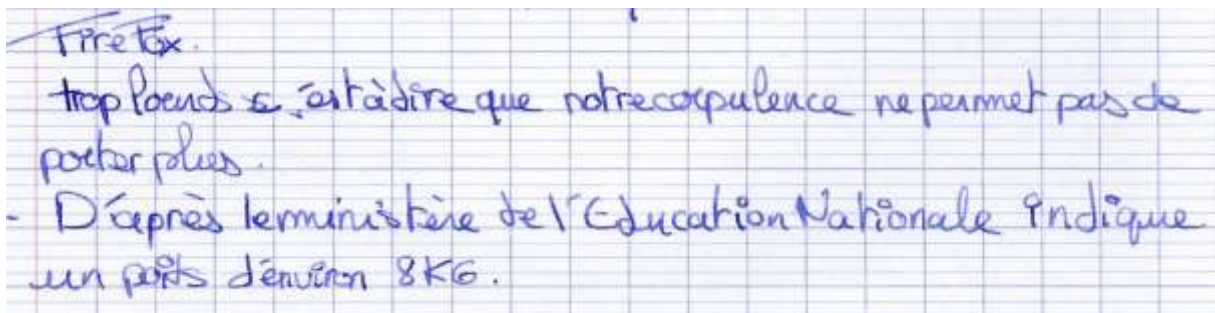 FireFox.
trop lourds c'est à dire que notre corpulence ne permet pas de
porter plus.
- D'après le ministère de l'Education Nationale indique
un poids d'environ 8KG.